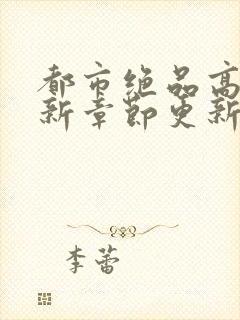 都市绝品高
新章节更新
李蕾